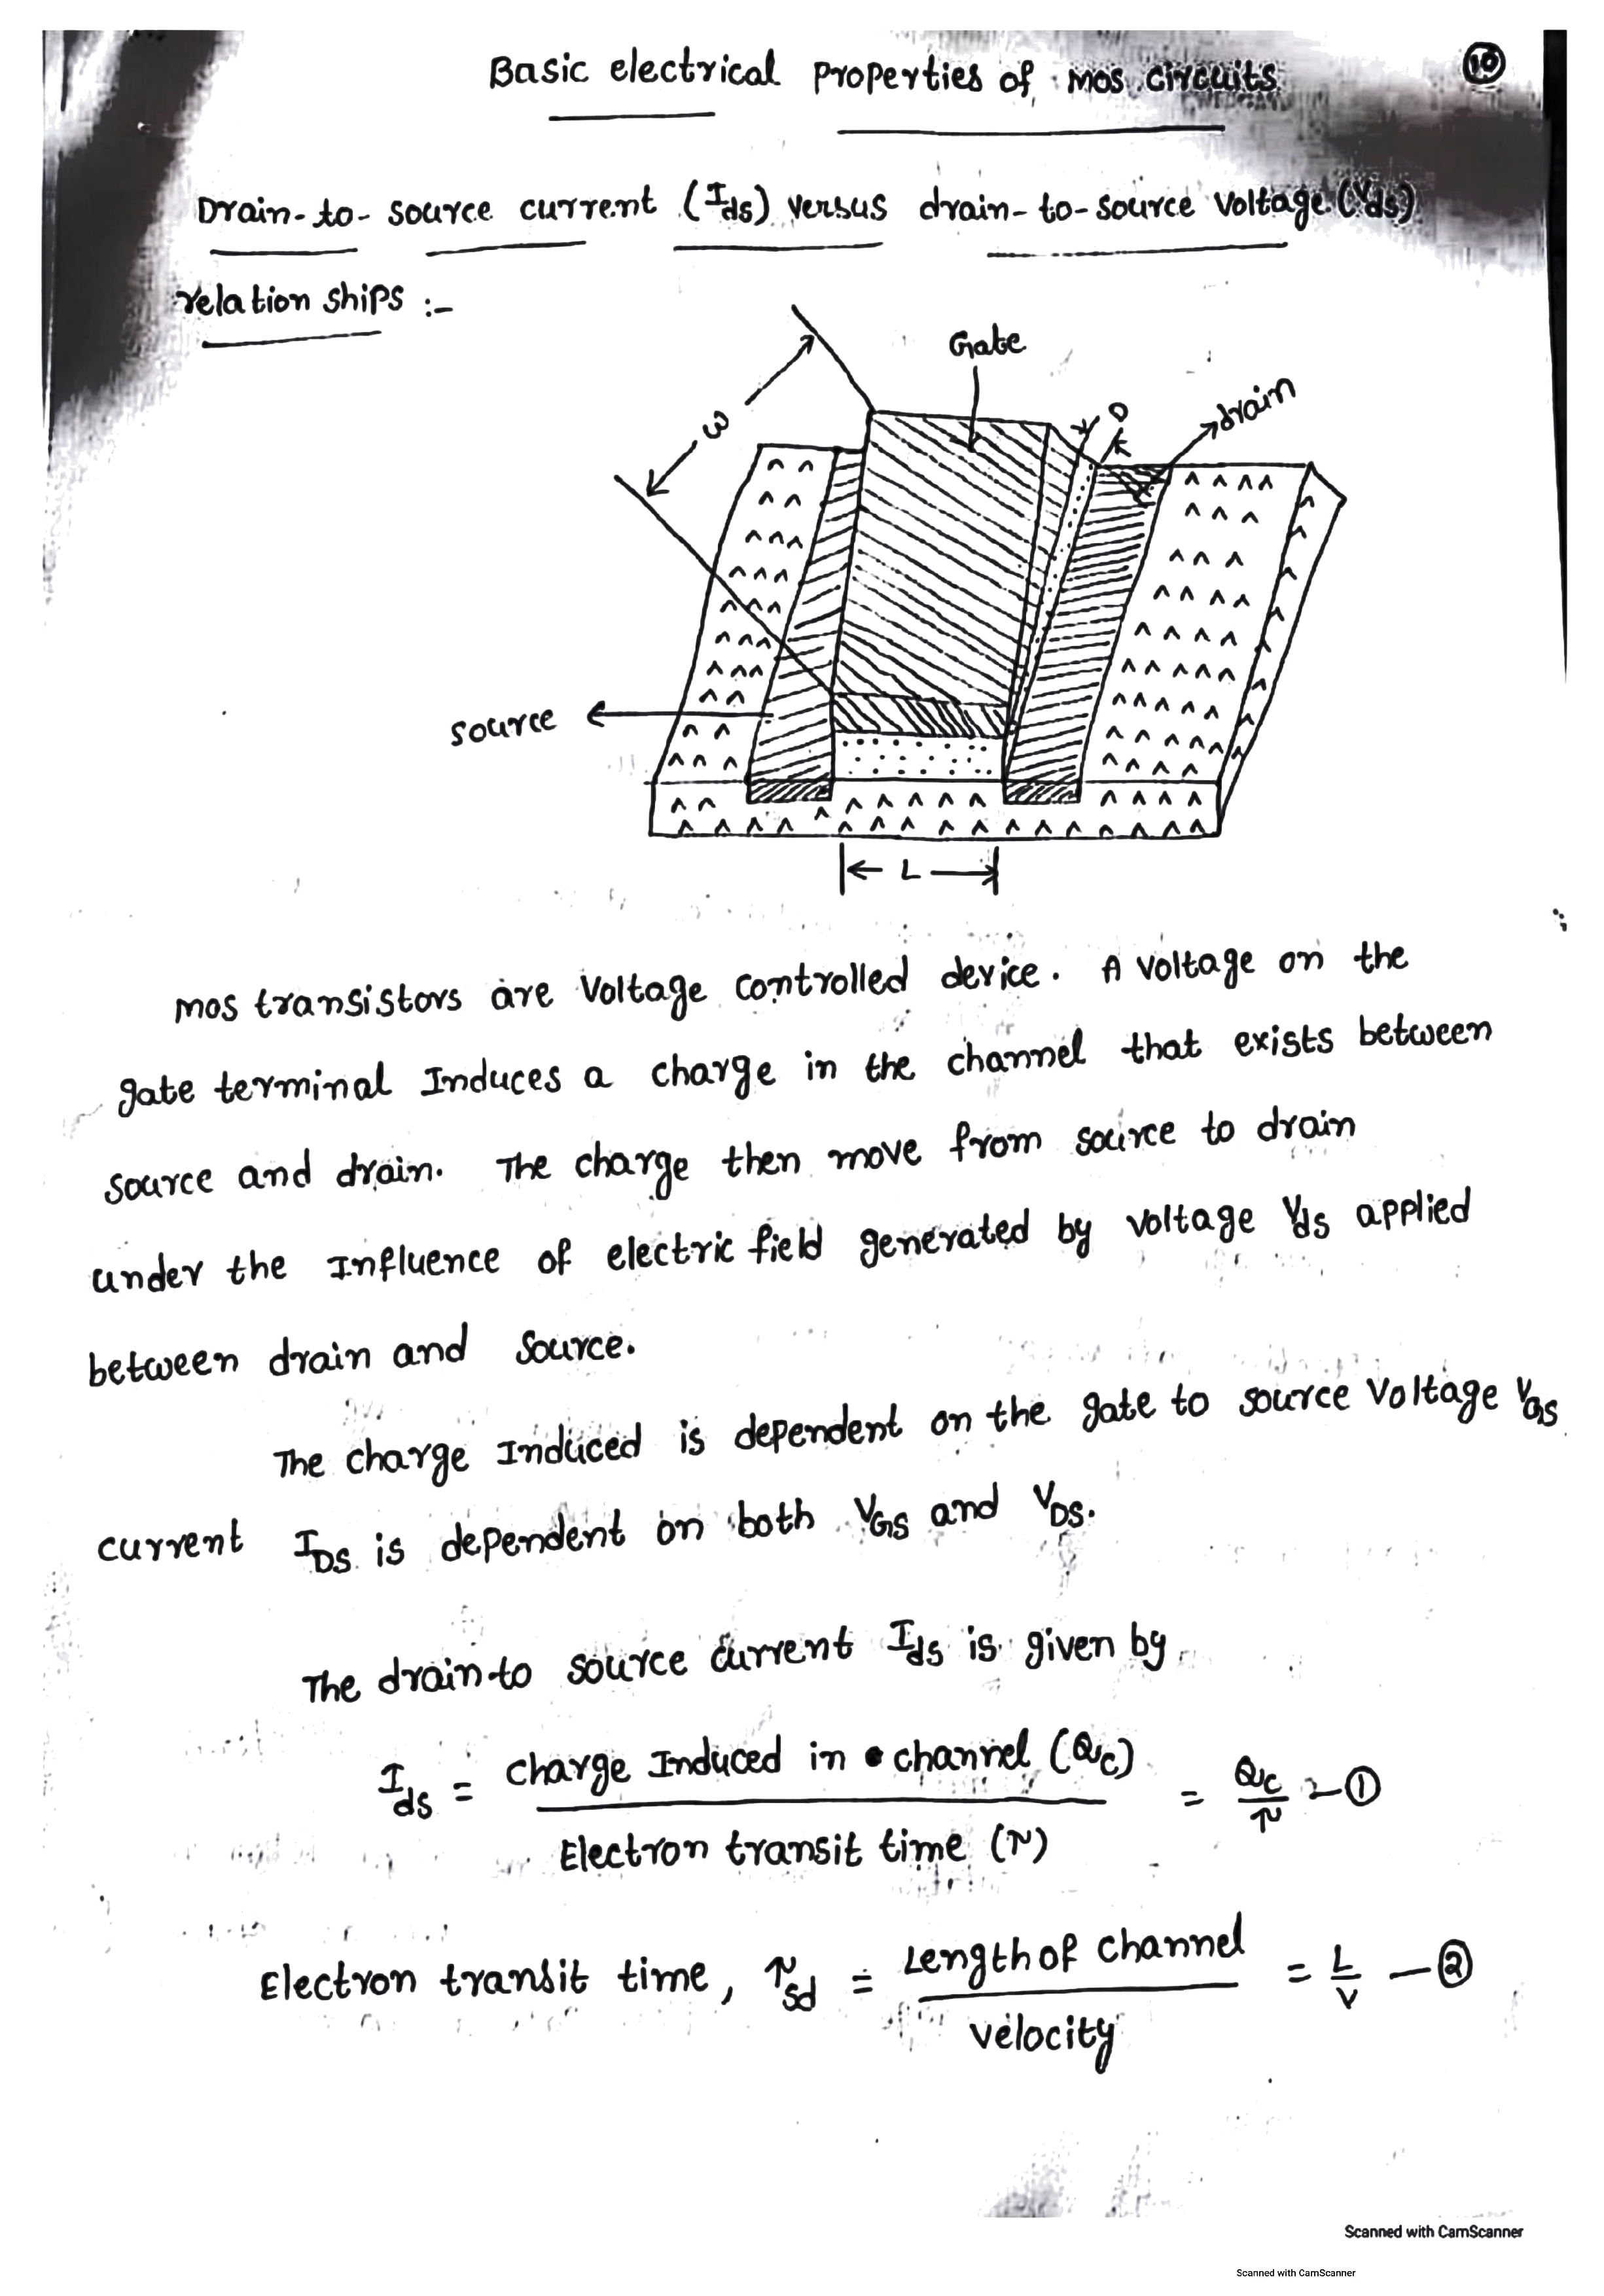 Basic electrical Properties of mos circuits
10
Drain-to-source current (Ids) versus drain-to-source voltage (Vds)
relation ships :-
Gate
D
drain
W
source
L
mos transistors are voltage controlled device. A voltage on the
gate terminal Induces a charge in the channel that exists between
source and drain. The charge then move from source to drain
under the Influence of electric field generated by voltage Vds applied
between drain and source.
The charge Induced is dependent on the gate to source voltage VGS
current IDS is dependent on both VGS and VDS.
The drain to source current Ids is given by
Ids = charge Induced in channel (Qc) / Electron transit time (τ) = Qc / τ - ①
Electron transit time, τsd = Length of channel / velocity = L / v - ②
Scanned with CamScanner
Scanned with CamScanner